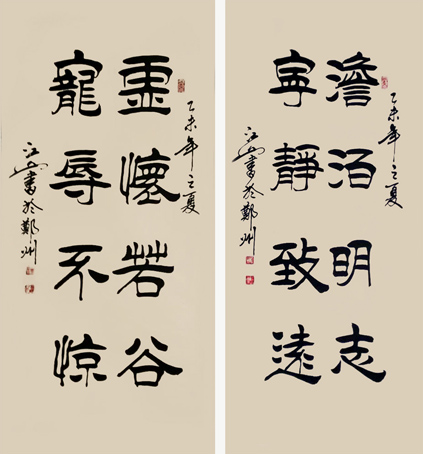 乙未年之夏
澹泊明志
寧靜致遠
江書於鄭州
乙未年之夏
虛懷若谷
寵辱不惊
江書於鄭州